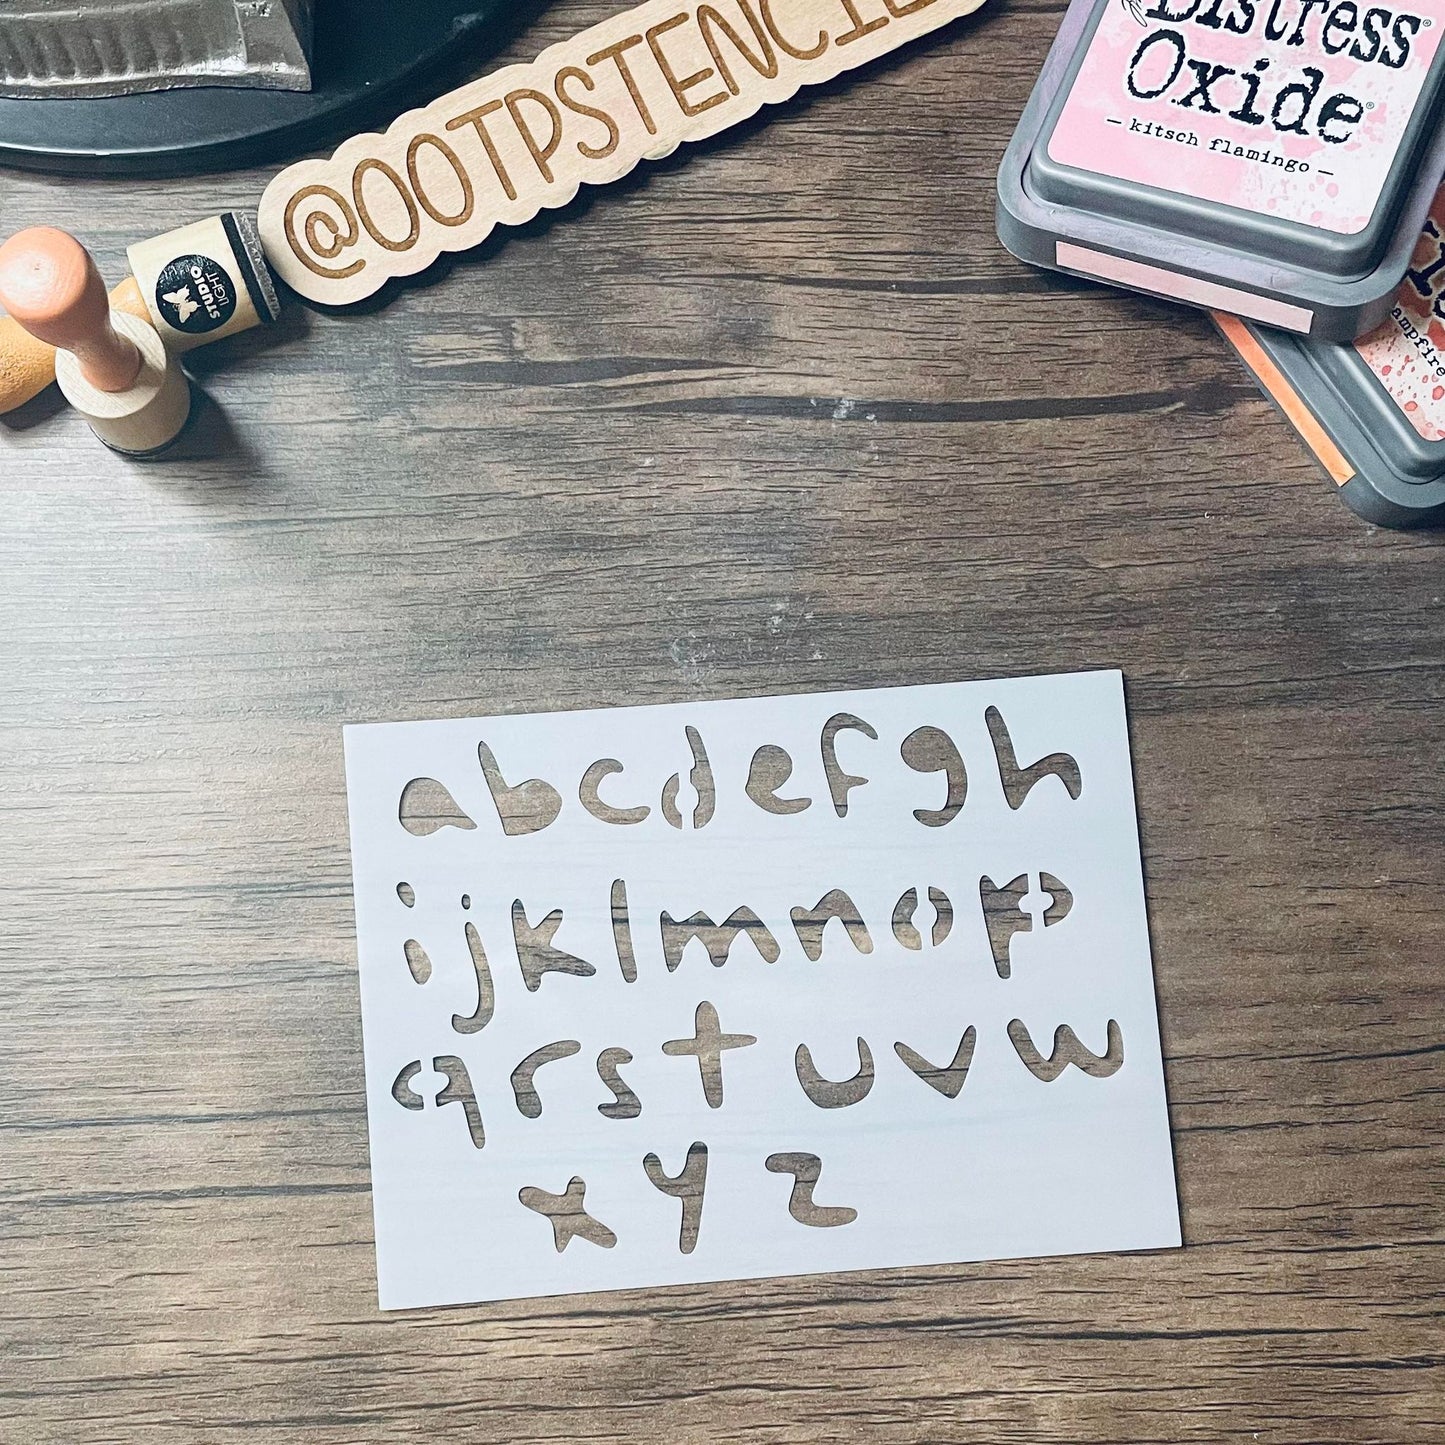 @OOTPSTENCIL
Distress®
Oxide®
— kitsch flamingo —
STUDIO
LIGHT
abcdefgh
ijklmnop
qrstuvw
xyz